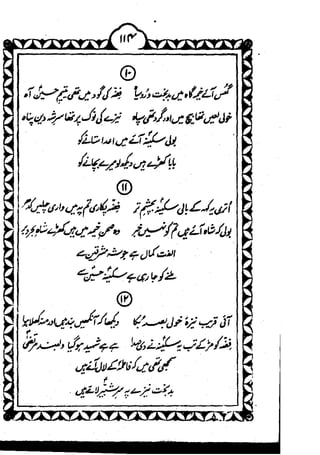 ۱۱۴
۱۰
گھس آئے خیمہ گاہ میں بدبخت رُوسیاہ فضہ کی گود میں تھی یتیم حسینؑ آہ
خولی لعیں تھا بیچ میں اور گرد تھی سپاہ نیزے کی نوک پر تھا سرِ شہِ دیں پناہ
بولی سکینہؑ آئے ہیں اعدا ستانے کو
بابا کھڑے ہیں دیکھو میرے بچانے کو
۱۱
اُتری یہ کہہ کے بالی سکینہؑ بچشمِ تر فضہ پکاری تم پہ میں واری چلیں کدھر
بولی کہ شاہ آئے ہیں تم کو نہیں خبر وہ صحنِ خیمہ میں ہیں کھڑے شاہِ بحر و بر
الفت کمال ہے جو شہِ مشرقین سے
ملنے کو جا رہی ہے سکینہؑ حسینؑ سے
۱۲
آئی قریب نیزۂ خولی بصد بکا دیکھا کہ آنکھیں بند ہیں اور منہ کھلا ہوا
فضہ کو مڑ کے تب یہ سکینہؑ نے دی صدا ہے ہے شہید ہوگیا دلبند مرتضیٰؑ
سمجھی تھی میں کہ فاطمہؑ کے لال آئے ہیں
بدبخت نیزے پہ سرِ شبیرؑ لائے ہیں